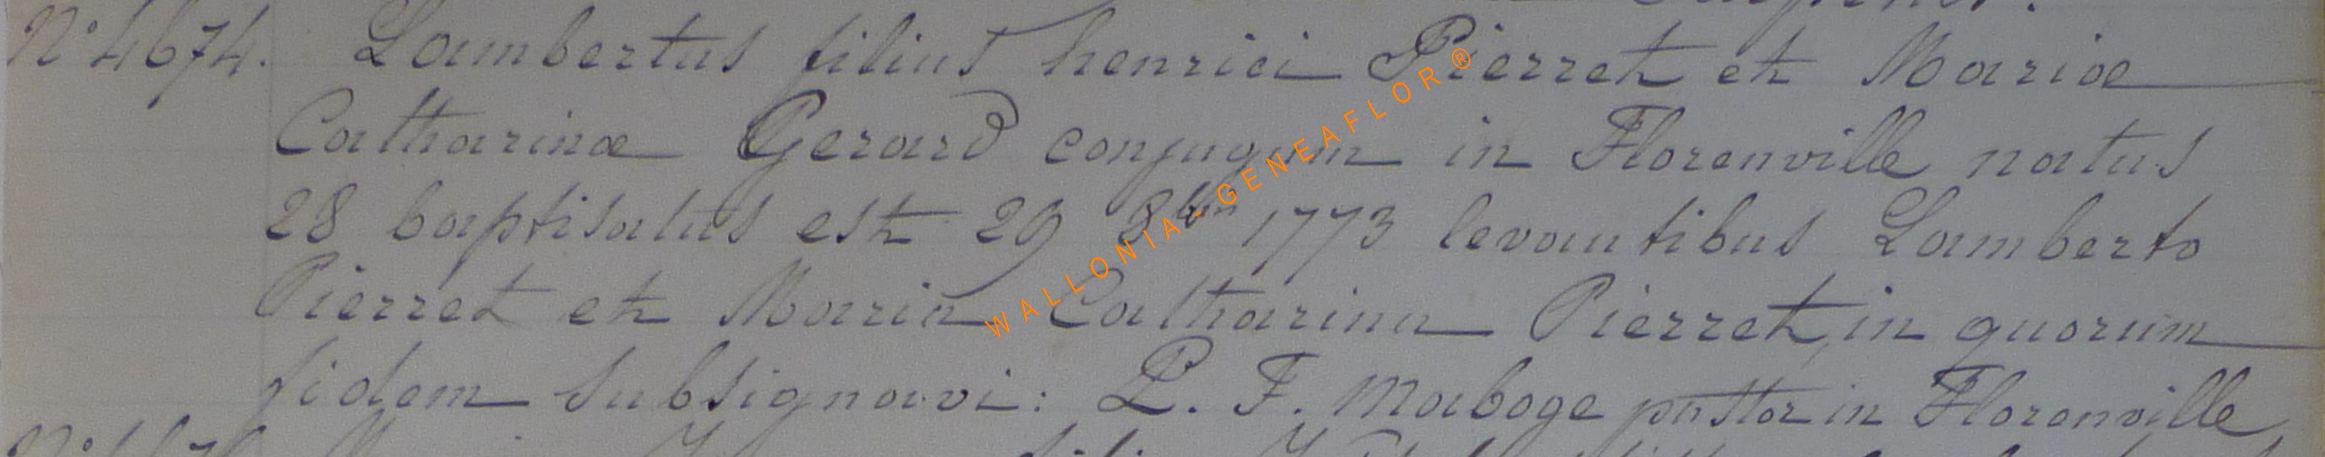 N° 4674. Lambertus filius henrici Pierret et Mariae
Catharinae Gerard conjugum in Florenville natus
28 baptisatus est 29 8bris 1773 levantibus Lamberto
Pierret et Maria Catharina Pierret, in quorum
fidem subsignavi: L. F. Maboge pastor in Florenville,
WALLONIA-GENEAFLOR®